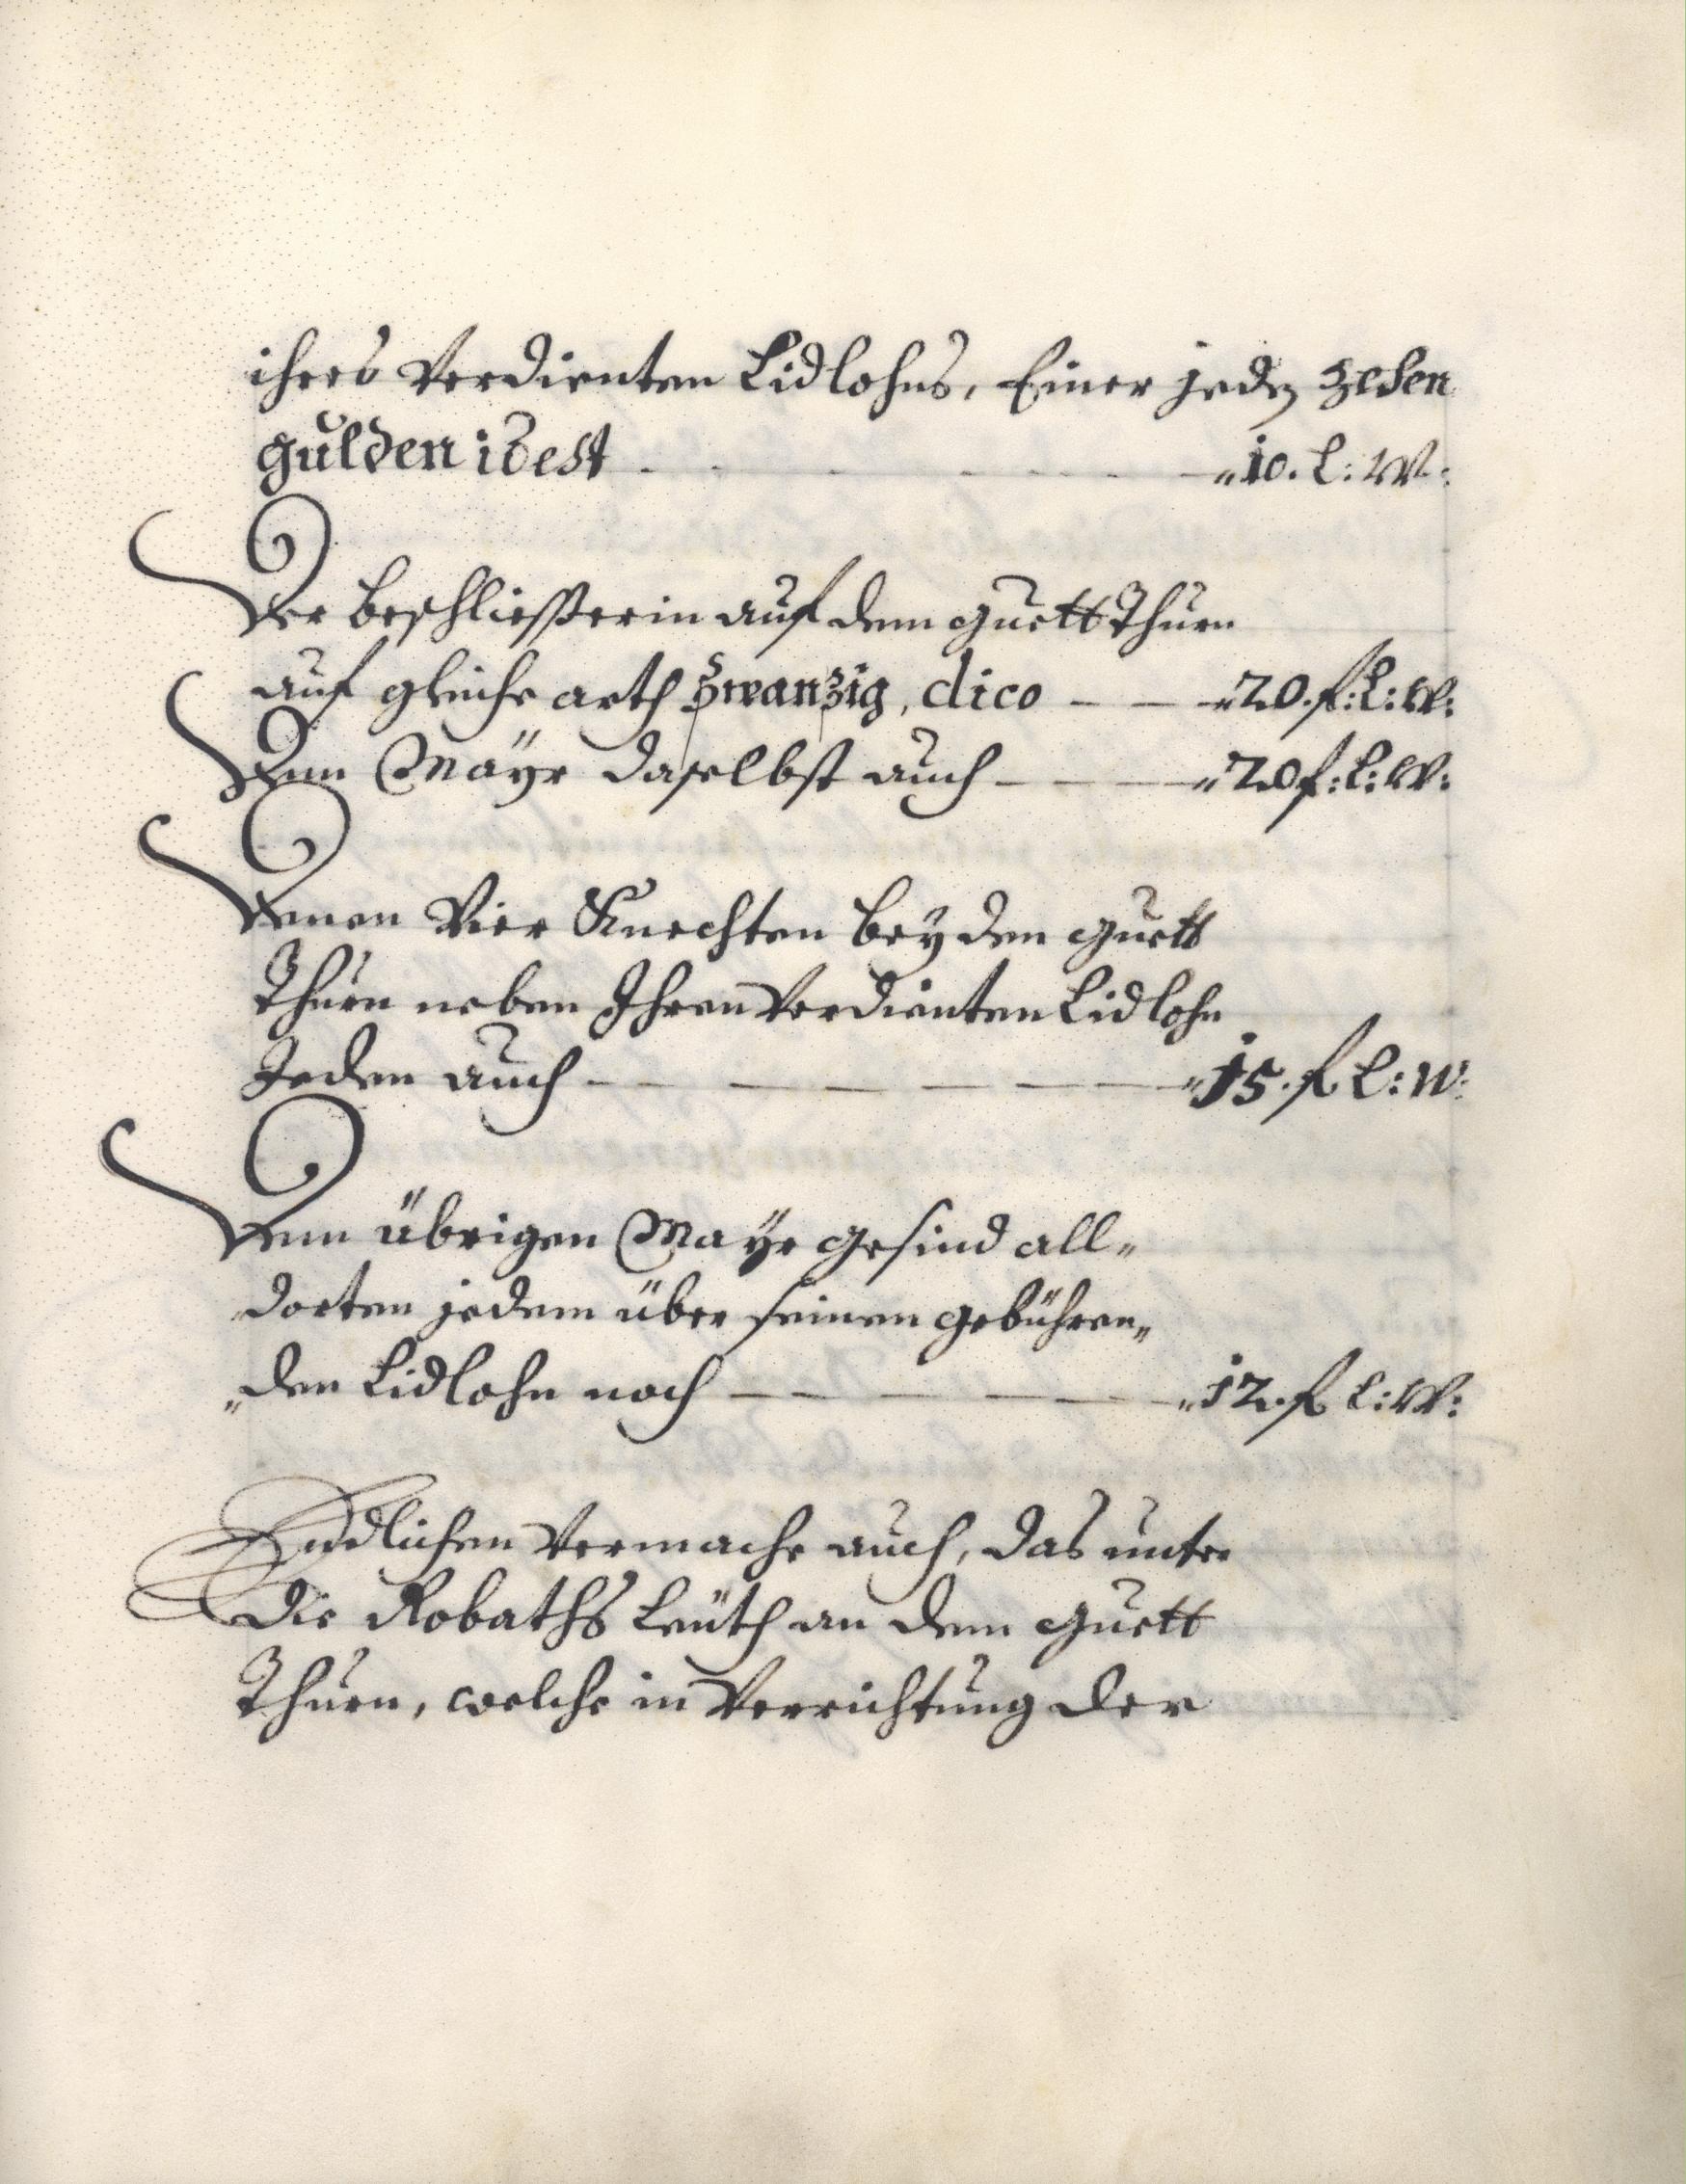 ihres Verdienten Lidlohns, Einer jedē zehen
gulden idest - - - - - „10. l: W:
Der beschließerin auf dem guett Thurn
auf gleiche arth zwanzig, dico - - „20. f: l: W:
Dem Mayr daselbst auch - - „20 f: l: W:
Denen Vier Knechten bey dem guett
Thurn neben Ihren Verdienten Lidlohn
Jedem auch - - - - - „15. f l: W:
Dem übrigen Mayr gesind all„
dorten jedem über seinen gebühren„
„den Lidlohn noch - - - - „12. f l: W:
Endlichen Vermache auch, das unter
die Robaths leüth an dem guett
Thurn, welche in Verrichtung der